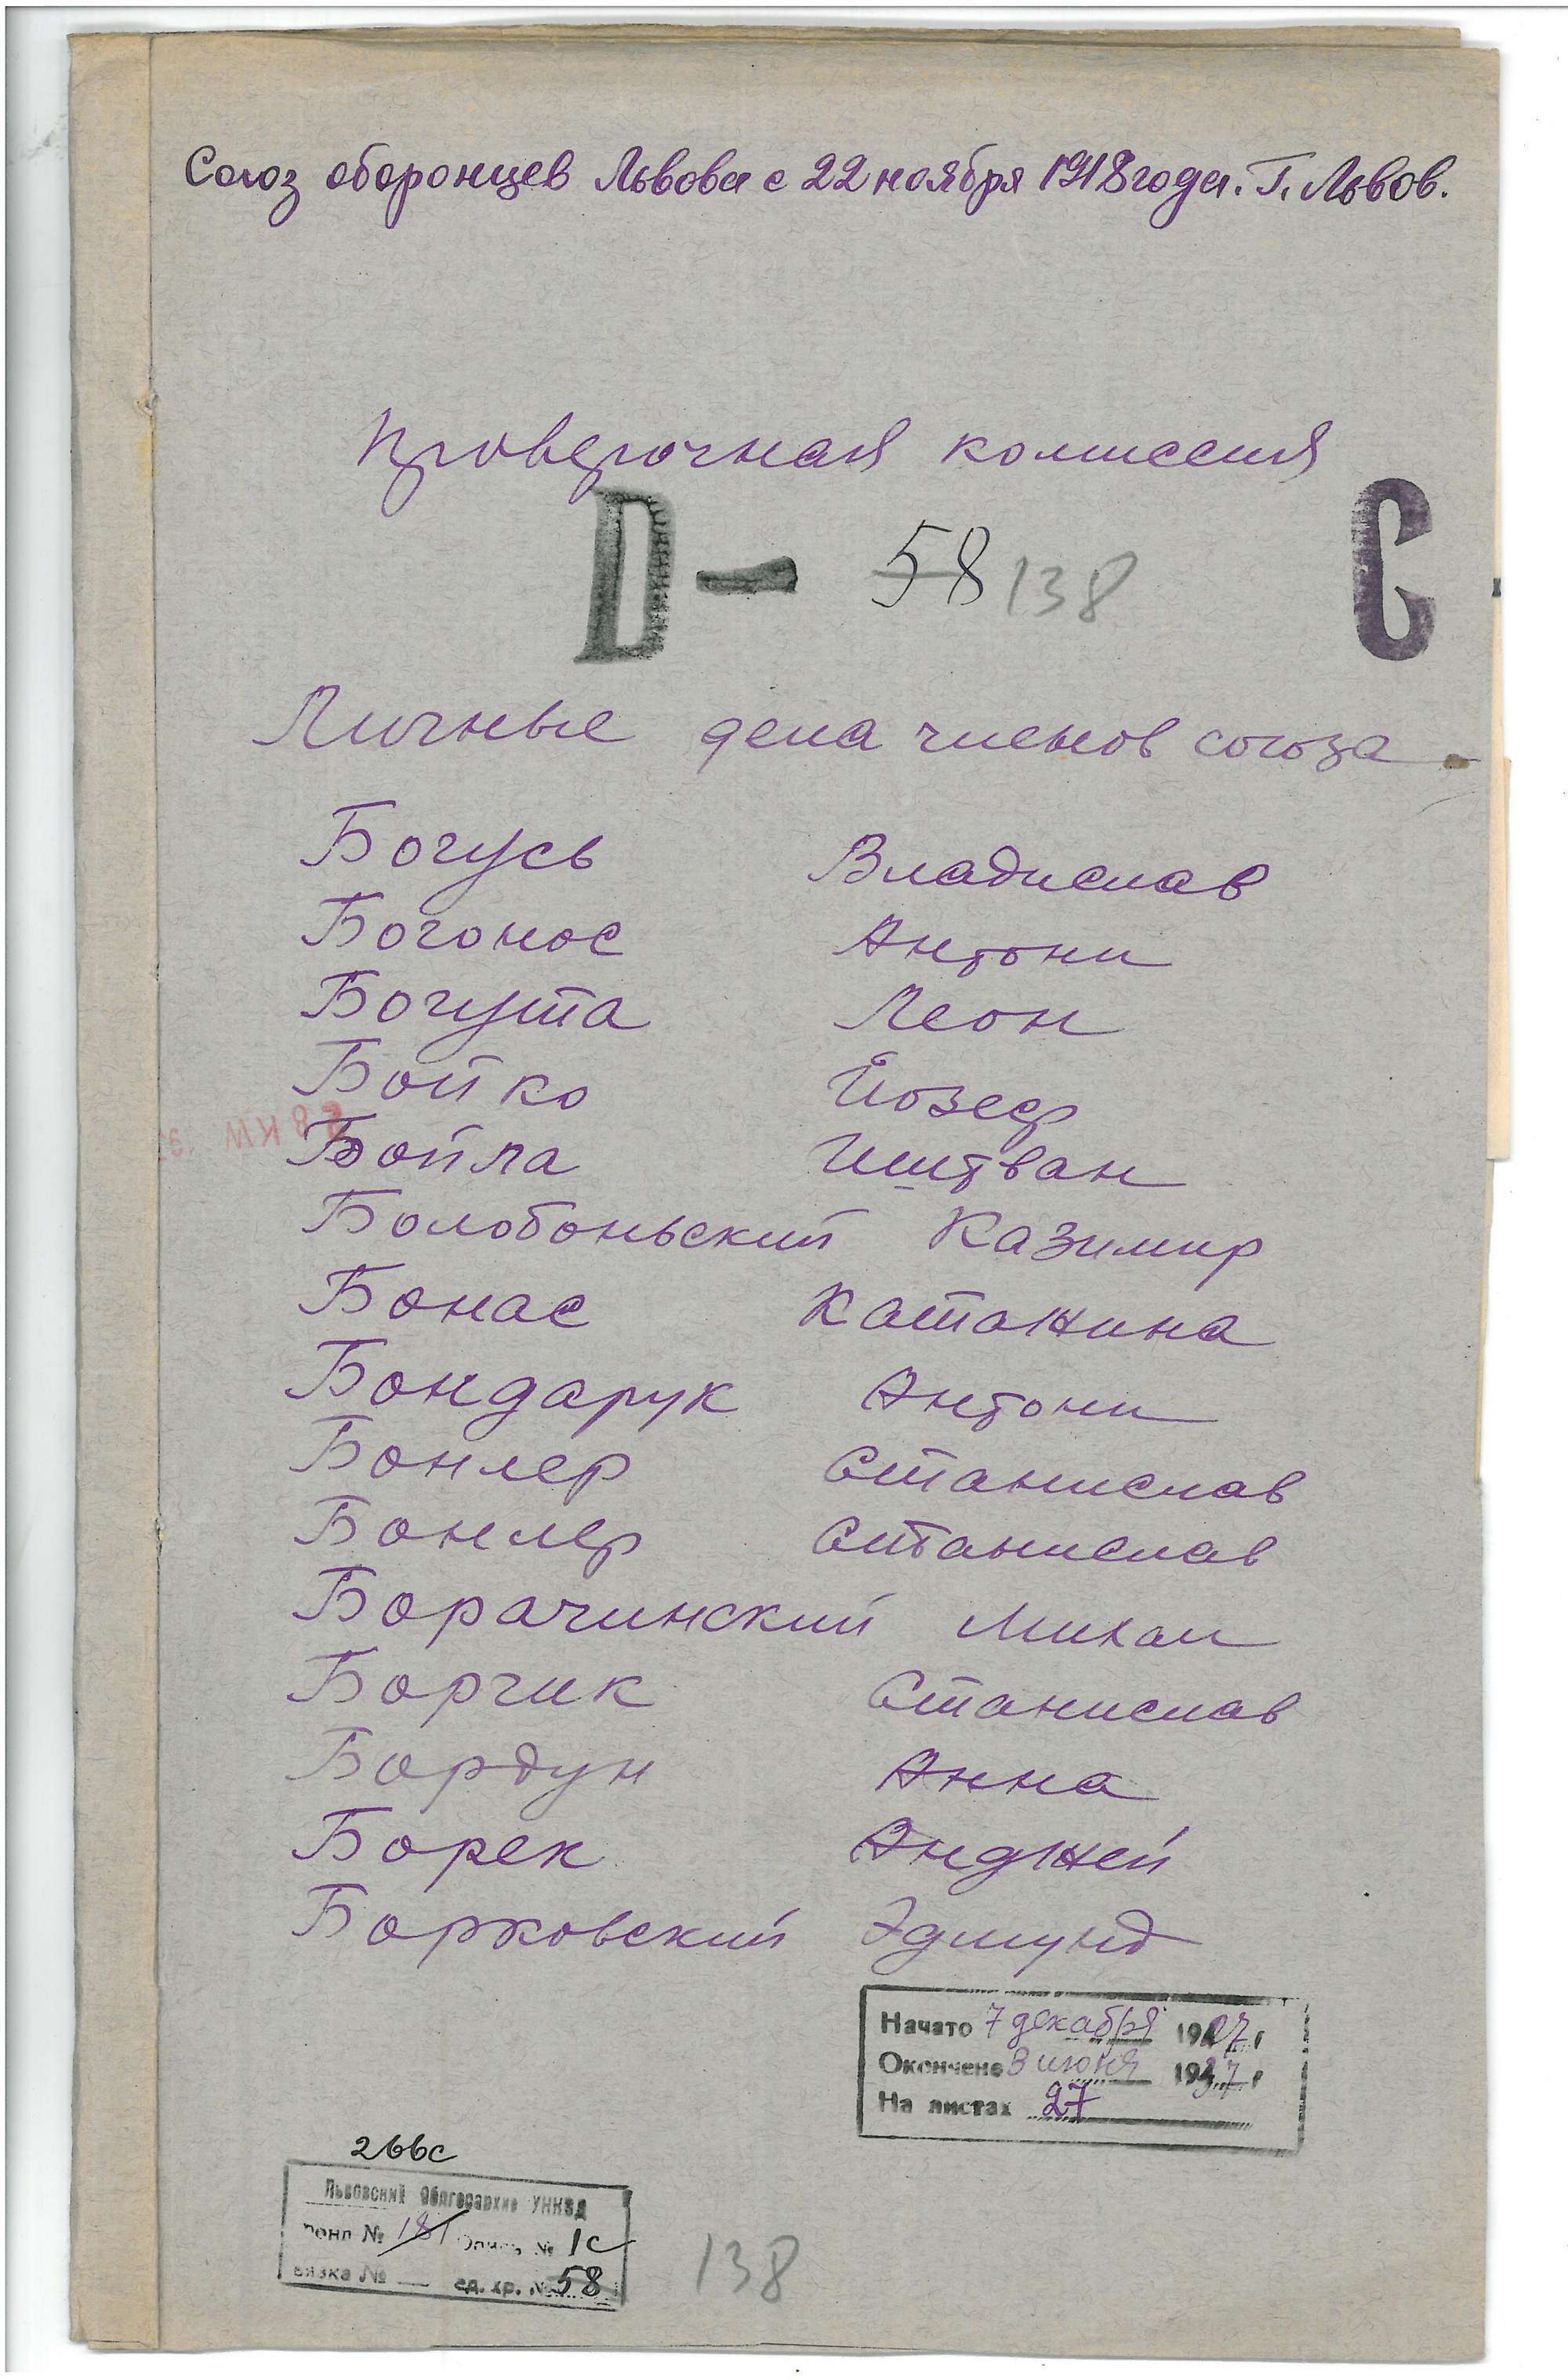 Союз оборонцев Львова с 22 ноября 1918 года. Г. Львов.
Проверочная комиссия
D — 58 138 C
Личные дела членов союза
Богусь Владислав
Богонос Антони
Богута Леон
Бойко Йозеф
Бойла Иштван
Болобоньский Казимир
Бонас Катажина
Бондарук Антони
Бонлер Станислав
Бонлер Станислав
Борачинский Михал
Борчик Станислав
Бордун Анна
Борек Анджей
Борковский Эдмунд
Начато 7 декабря 1927 г
Окончено 3 июня 1937 г
На листах 27
266с
Львовский Облгосархив УНКВД
Фонд № 181 Опись № 1с
Связка № — ед. хр. № 58
138